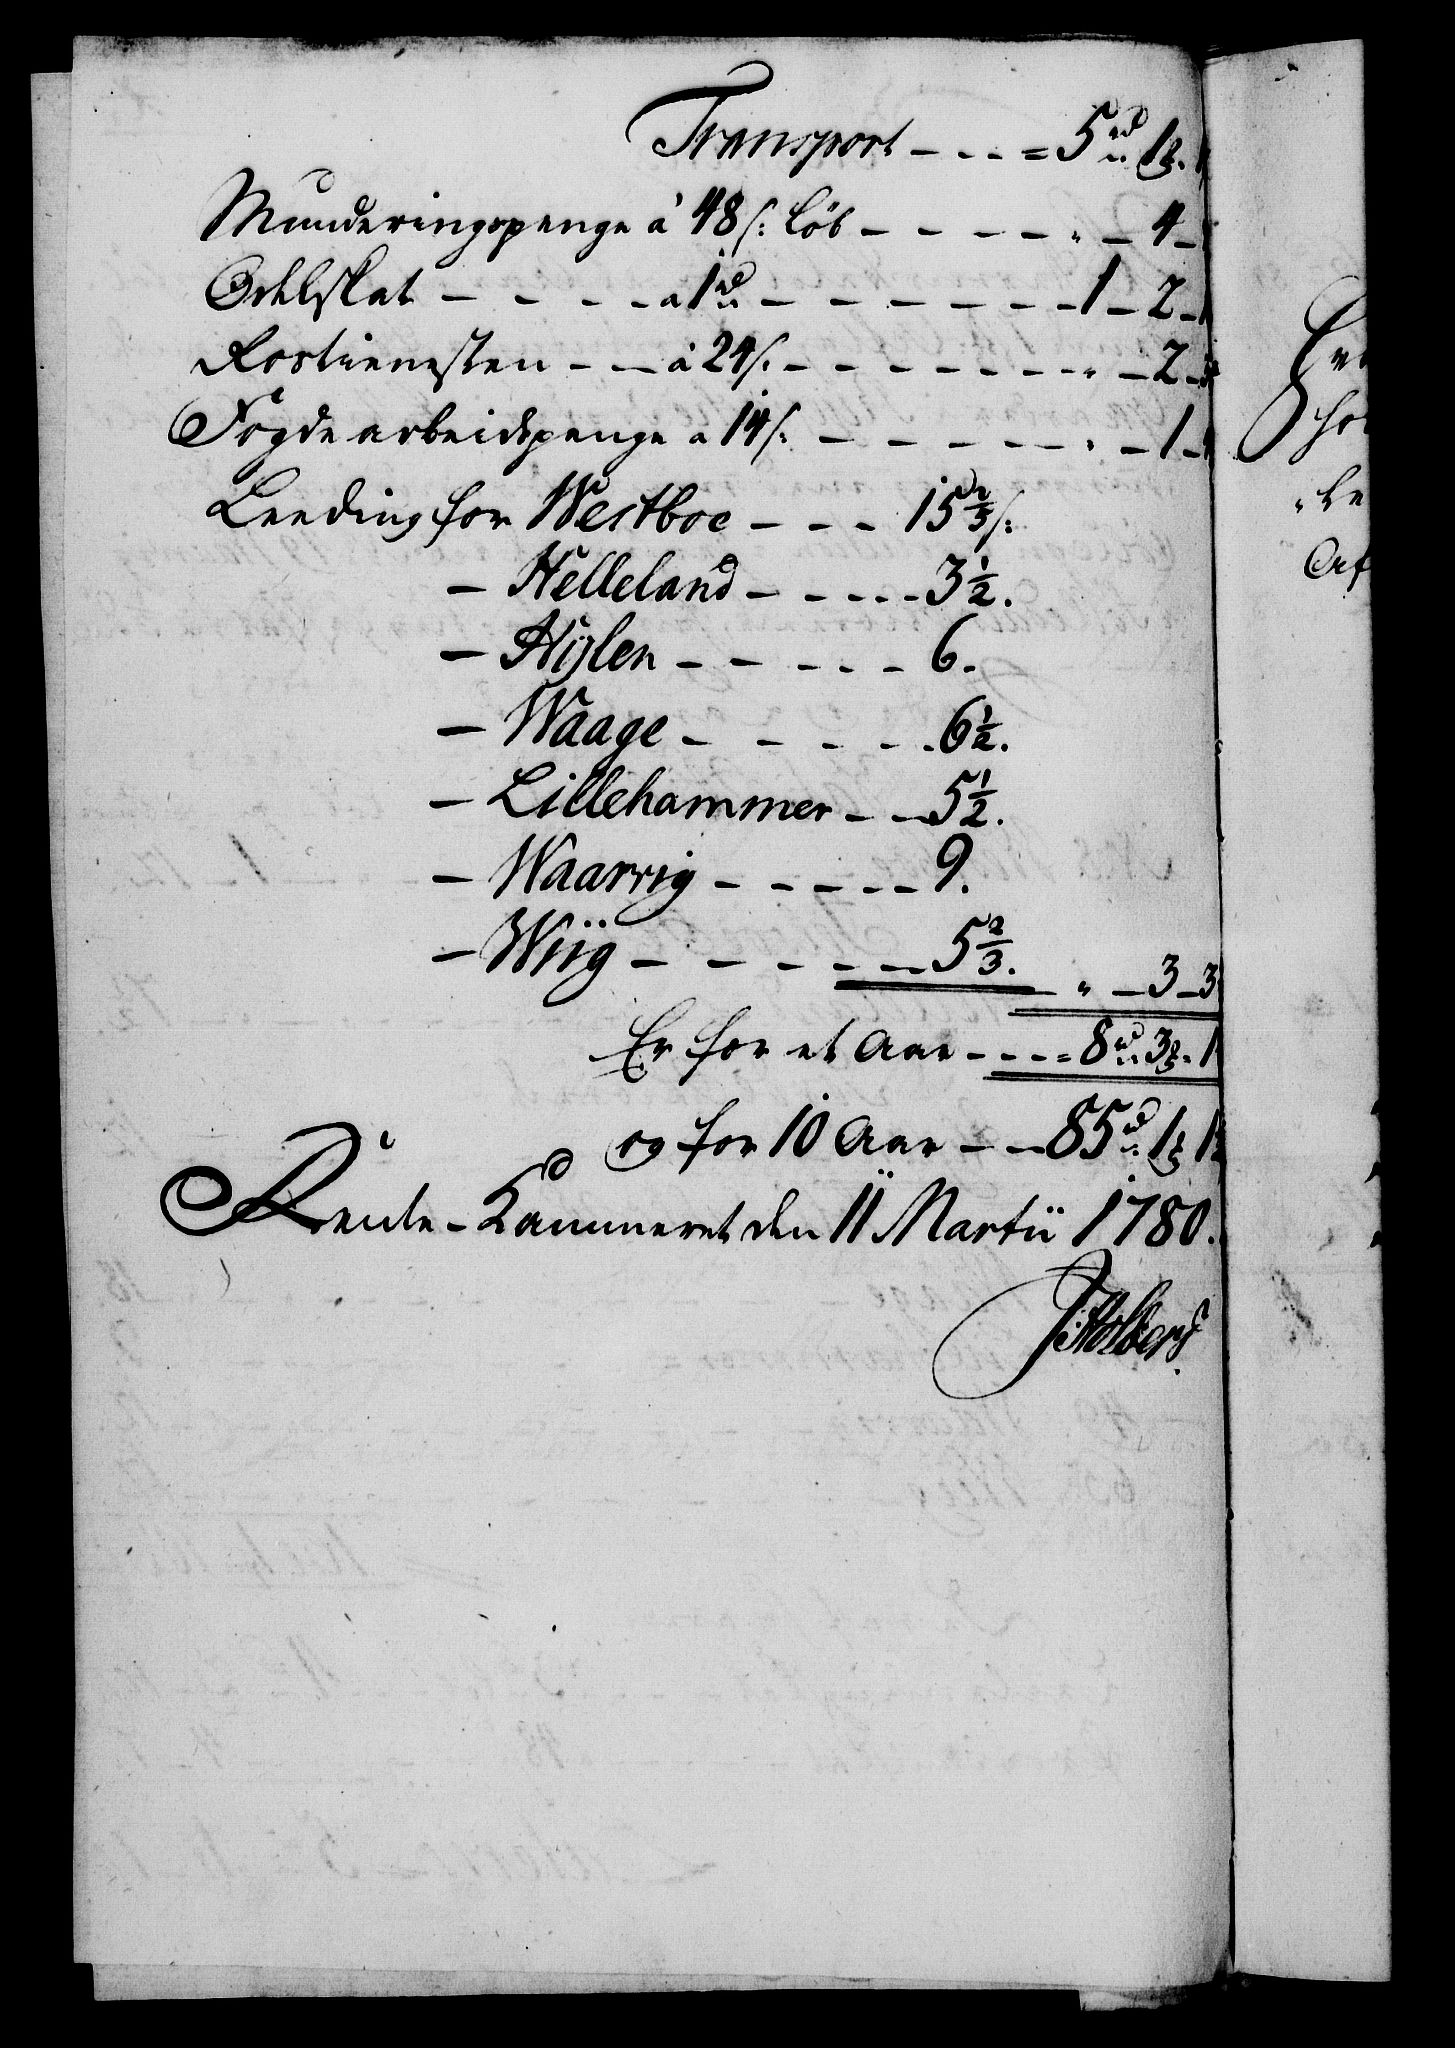 Transport - - - = 5 rd 1 ₰.
Munderingspenge à 48 s: löb - - - - " - 4 -
Odelskat - - - - à 1 rd - - - - - - 1 - 2 -
Rostienesten - - - à 24 s. - - - - - - " - 2 -
Fogde arbeidspenge a 14 s: - - - - - " - 1 -
Leeding for Westboe - - - 15 2/3 s:
- Helleland - - - - - 3 1/2.
- Hylen - - - - - 6.
- Waage - - - - - 6 1/2.
- Lillehammer - - 5 1/2.
- Waarvig - - - - - 9.
- Wiig - - - - - - 5 2/3. " - 3 - 3
Er for et Aar - - - = 8 rd 3 ₰. 1
og for 10 Aar - - 85 rd 1 ₰ 1
Rente-Kammeret den 11 Martii 1780.